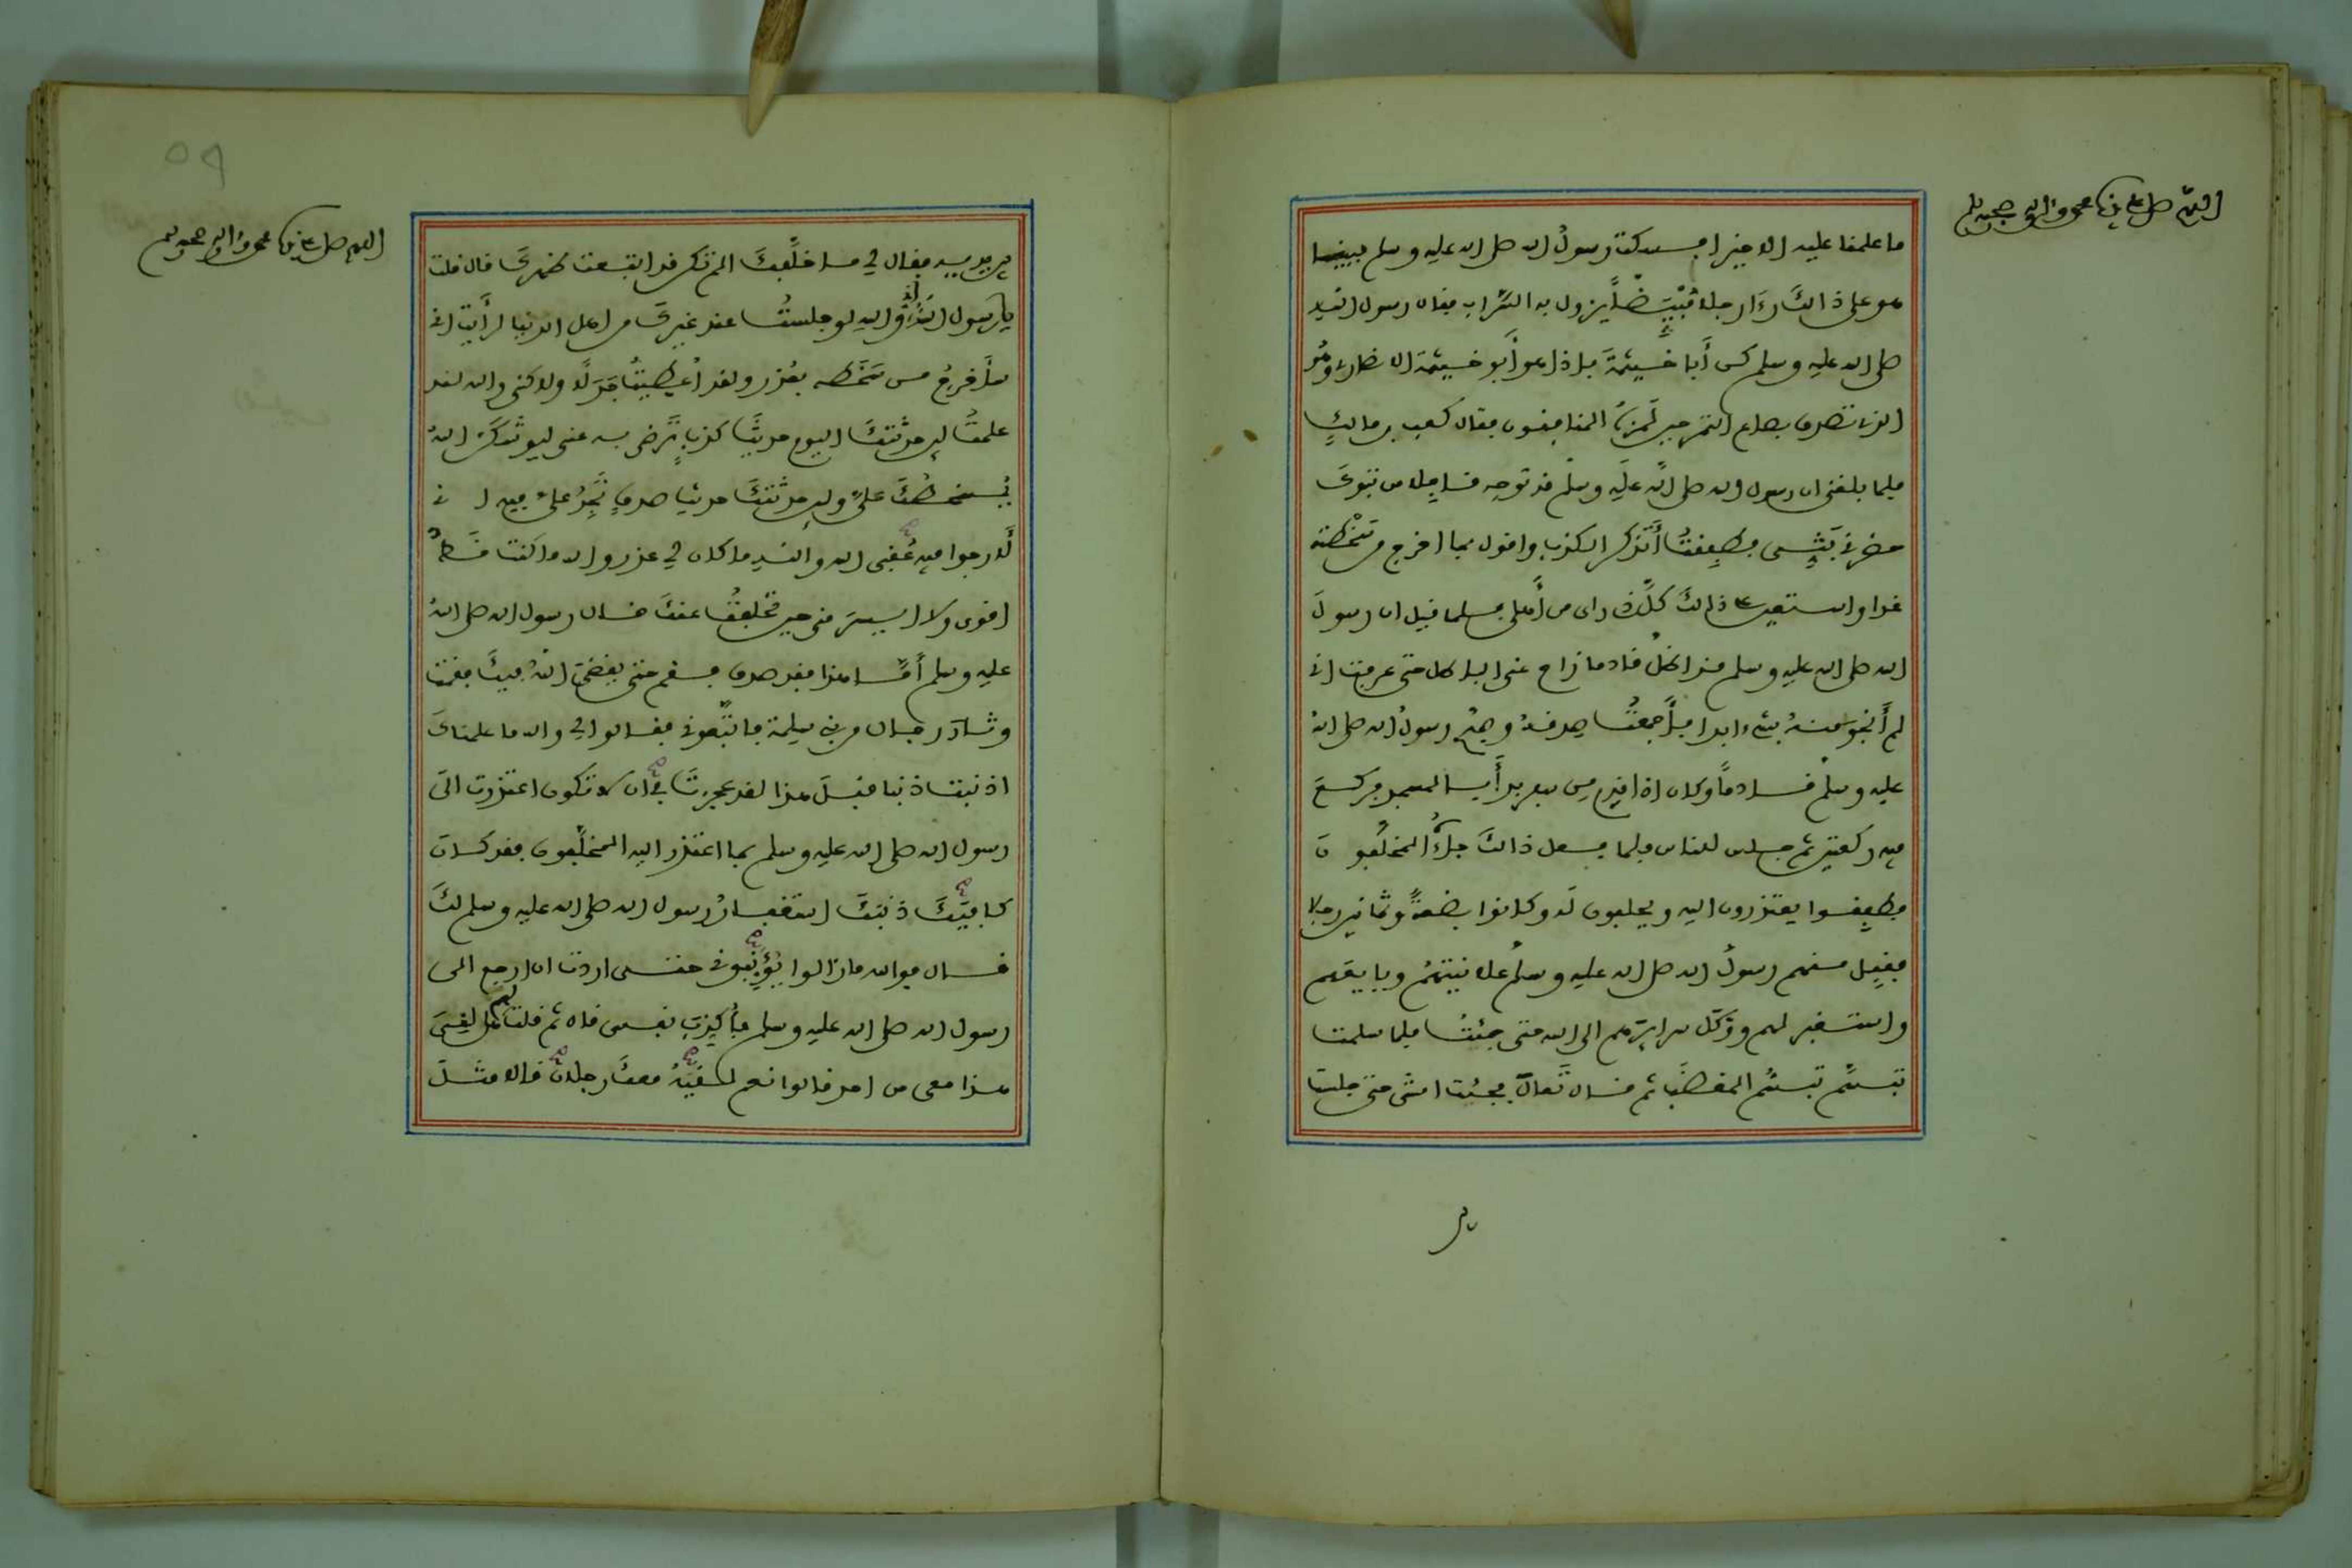 اللهم صل على سيدنا محمد وءاله وصحبه وسلم
ما علمنا عليه الا خيرا فسكت رسولُ الله صلى الله عليه وسلم فبينما
هو على ذالكَ رءَا رجلا مُبْيَضًّا يزول به السَّراب فقال رسول الله
صلى الله عليه وسلم كن أَبا خَيثمةَ فإذا هو أَبو خيثمة الانصارى وهُو
الذى تصدق بصاع التمر حين لَمزَهُ المنافقون فقال كعب بن مالكٍ
فلما بلغنى ان رسول الله صلى الله عليه وسلم قد توجه قافلا من تبوكَ
حضرنى بَثِّى فطفِقتُ أَتذكر الكذب واقول بما اخرج من سَخْطته
غدا واستعين على ذالكَ كلَّ ذى راى من أَهلى فلما قيل ان رسولَ
الله صلى الله عليه وسلم قد اظلّ قادما زاح عنى الباطل حتى عرفت انى
لم أَنجُو منهُ بشىء ابدا فأَجمعتُ صدقهُ وصبّح رسولُ الله صلى اللهُ
عليه وسلم قادماً وكان اذا قدم من سفر بدأَ بالمسجد فركعَ
فيه ركعتين ثم جلس للناس فلما فعل ذالكَ جاءَهُ المخلّفونَ
فطفِقوا يعتذرون اليه ويحلفون له وكانوا بضعةً وثمانين رجلا
فقبِل منهم رسولُ الله صلى الله عليه وسلم علانيتهُمْ وبايعَهم
واستغفر لهم ووَكَل سرايِرَهم الى الله حتى جئتُ فلما سلمت
تبسَّم تبسُّم المغضَب ثم قال تَعالَ فجئت امشى حتى جلست
بين
٥٩
اللهم صل على سيدنا محمد وءاله وصحبه وسلم
بين يديه فقال لى ما خلَّفكَ الم تكن قد ابتعت ظهركَ قال قلت
يا رسول اللهِ إنى واللهِ لو جلستُ عند غيركَ من اهل الدنيا لرأَيت انى
سأَخرجُ من سَخَطه بعُذر ولقد اُعْطِيتُ جَدَلًا ولاكنى والله لقد
علمتُ لين حدّثتكَ اليوم حديثَ كذبٍ تَرضى به عنى ليوشكَنّ اللهُ
يُسخطكَ علىَّ ولين حدّثتكَ حديث صدقٍ تَجِدُ علىَّ فيه انى
لَارجوا فيه عُقبى الله والله ما كان لى عذر والله ما كنت قَطُّ
اقوى ولا ايسرَ منى حين تخلّفتُ عنكَ قال رسول الله صلى اللهُ
عليه وسلم أَمَّا هذا فقد صدق فقم حتى يقضىَ اللهُ فيكَ فقمت
وثارَ رجال من بنى سلمة فاتّبعونى فقالوا لى والله ما علمناكَ
اذنبت ذنبا قبلَ هذا لقد عجزتَ فى ان لا تكون اعتذرت الىَ
رسول الله صلى الله عليه وسلم بما اعتذر اليه المخلّفون فقد كانَ
كافيَكَ ذنبَكَ استغفارُ رسول الله صلى الله عليه وسلم لكَ
قال فوالله ما زالوا يُؤَنِّبونى حتى اردت ان ارجع الى
رسول الله صلى الله عليه وسلم فأُكذِبَ نفسى قال ثم قلت لهم هل لقىَ
هذا معى من احد قالوا نعم لَقيَهُ معكَ رجلان قالا مثلَ